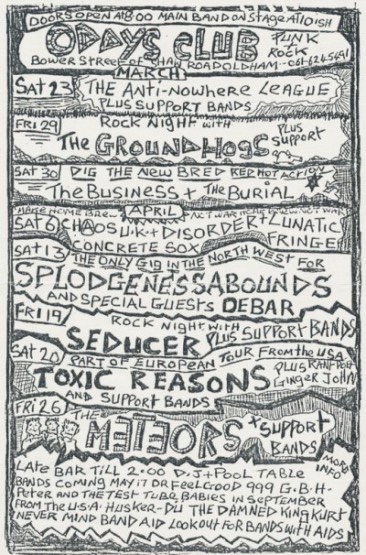 DOORS OPEN AT 8:00 MAIN BAND ON STAGE AT 10 ISH
ODDYS CLUB PUNK N ROCK
BOWER STREET OFF SHAW ROAD OLDHAM - 061-624
MARCH
SAT 23 THE ANTI-NOWHERE LEAGUE
PLUS SUPPORT BANDS
FRI 29 ROCK NIGHT WITH
THE GROUNDHOGS PLUS SUPPORT
SAT 30 DIG THE NEW BRED RED HOT ACTION
THE BUSINESS + THE BURIAL
APRIL
SAT 6 CHAOS U.K + DISORDER + LUNATIC FRINGE
CONCRETE SOX
SAT 13 THE ONLY GIG IN THE NORTH WEST FOR
SPLODGENESSABOUNDS
AND SPECIAL GUESTS DEBAR
FRI 19 ROCK NIGHT WITH
SEDUCER PLUS SUPPORT BANDS
SAT 20 PART OF EUROPEAN TOUR FROM THE USA
TOXIC REASONS PLUS RANT POET GINGER JOHN
AND SUPPORT BANDS
FRI 26 THE
METEORS + SUPPORT BANDS
LATE BAR TILL 2:00 D.J + POOL TABLE MORE INFO
BANDS COMING MAY 17 DR FEELGOOD 999 G.B.H.
PETER AND THE TEST TUBE BABIES IN SEPTEMBER
FROM THE U.S.A. HUSKER-DU THE DAMNED KING KURT
NEVER MIND BAND AID LOOKOUT FOR BANDS WITH AIDS